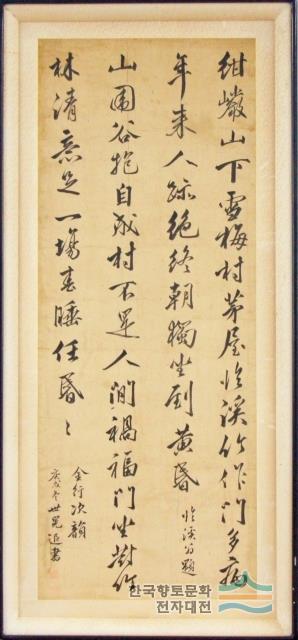 紺巖山下雪梅村茅屋臨溪竹作門多病
年來人跡絶終朝獨坐到黃昏 臨溪翁題
山圍谷抱自成村不是人間禍福門坐對
林清意足一場春睡任昏〻
金行次韻
世晃追書
한국향토문화
전자대전